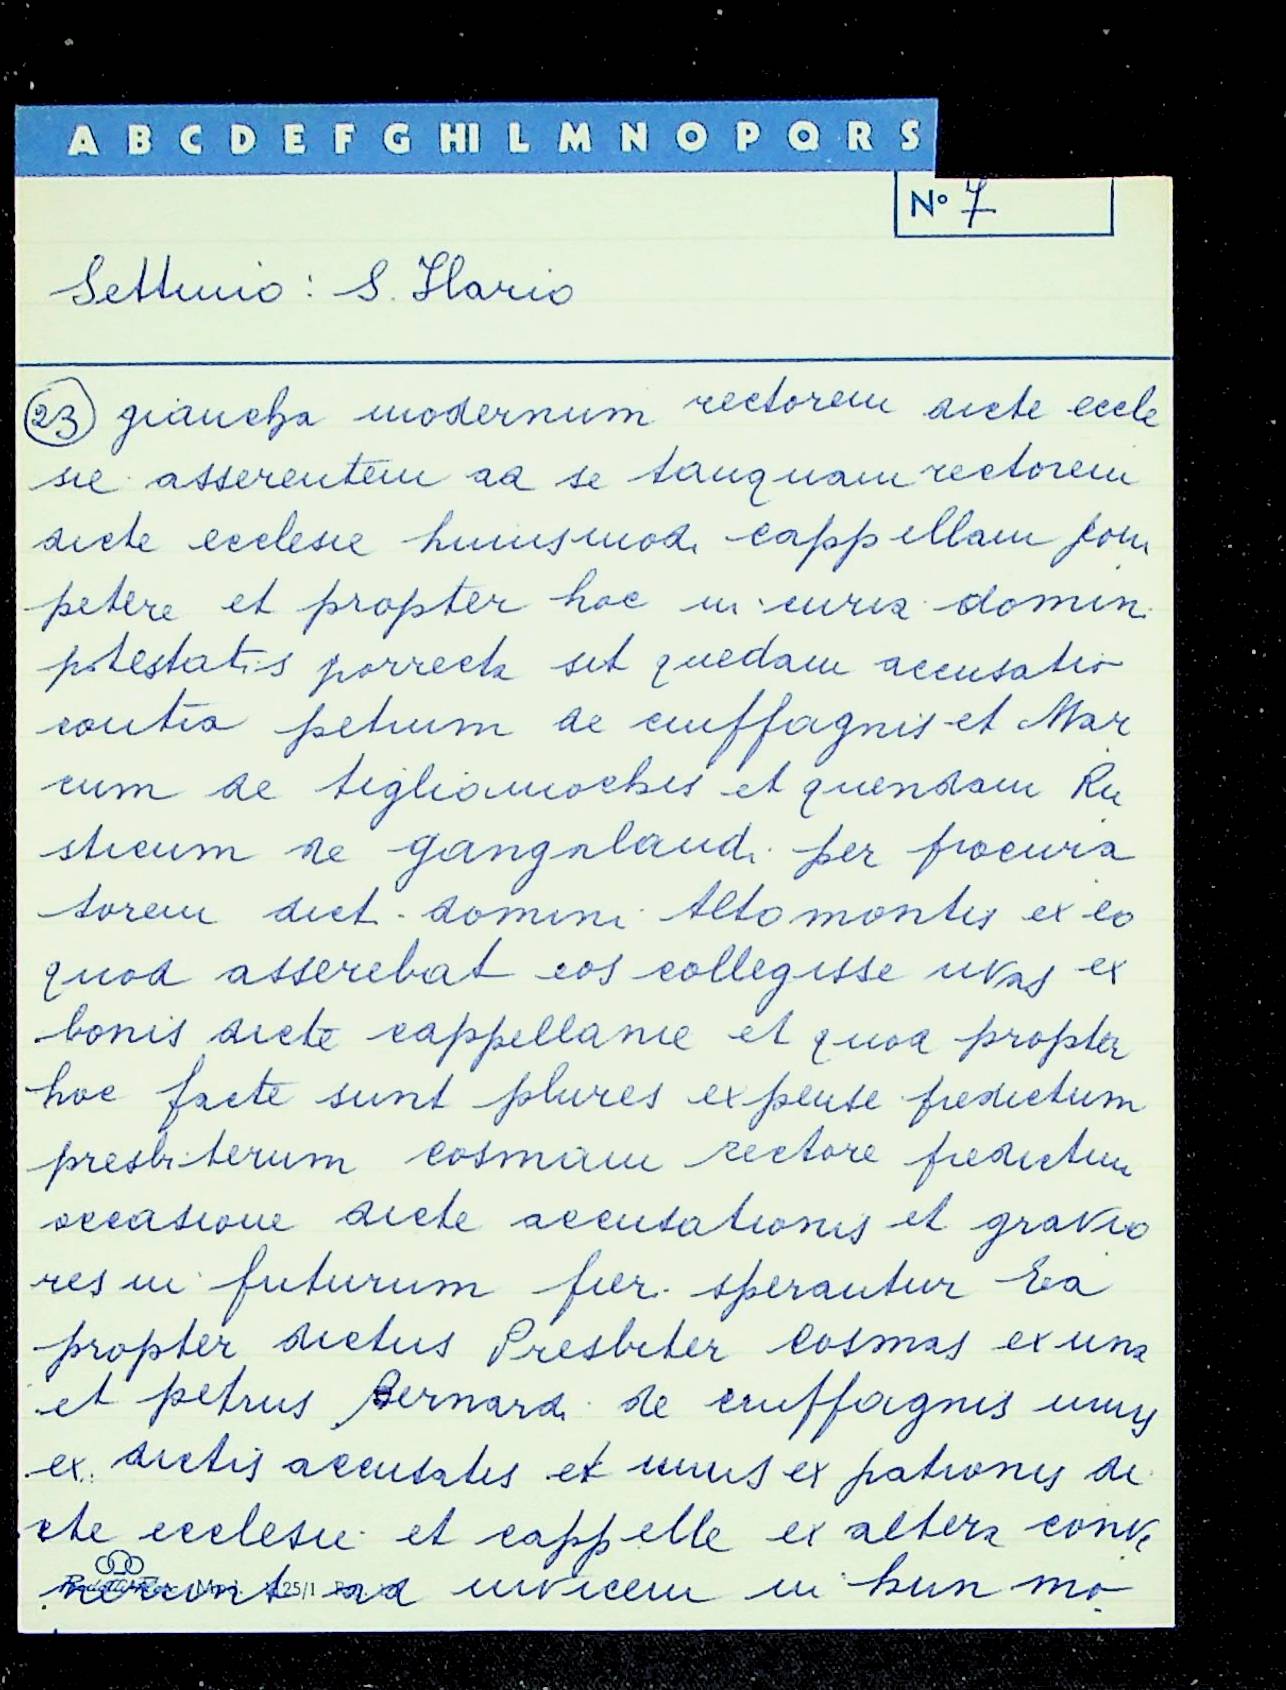 A B C D E F G HI L M N O P Q R S
N° 7
Settimo: S. Ilario
23 giancha modernum rectorem dicte eccle
sie asserentem ad se tanquam rectorem
dicte ecclesie huiusmodi cappellam com
petere et propter hoc in curia domini
potestatis porrecta sit quedam accusatio
contra petrum de ciuffagnis et Mar
cum de tigliamochis et quendam Ru
sticum de gangalandi per procura
torem dicti domini Altomontis ex eo
quod asserebat eos collegisse uvas ex
bonis dicte cappellanie et quod propter
hoc facte sunt plures expense predictum
presbiterum cosmam rectore predictum
occasione dicte accusationis et gravio
res in futurum fieri sperantur Ea
propter dictus Presbiter Cosmas ex una
et petrus Bernardi de ciuffagnis unus
ex dictis accusatis et unus ex patronis di
cte ecclesie et cappelle ex altera conve
nerunt ad invicem in hun mo